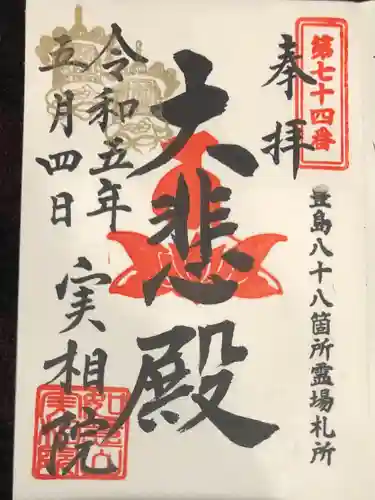 第七十四番
奉拝
豊島八十八箇所霊場札所
大悲殿
令和五年
五月四日
実相院